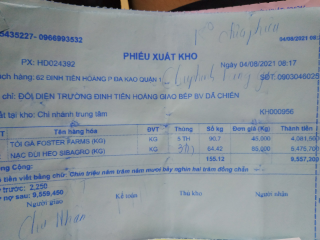 5435227- 0966993532
04/08/2021
PHIẾU XUẤT KHO
PX: HD024392
Ngày 04/08/2021 08:17
ách hàng: 62 ĐINH TIÊN HOÀNG P ĐA KAO QUẬN 1
SĐT: 0903046025
chỉ: ĐỐI DIỆN TRƯỜNG ĐINH TIÊN HOÀNG GIAO BẾP BV DÃ CHIẾN
uất tại kho: Chi nhánh trung tâm
KH000956
Tên hàng hóa ĐVT Thùng Số kg Đơn giá (Kg) Thành tiền
TỎI GÀ FOSTER FARMS (KG) KG 5 TH 90.7 45,000
NẠC ĐÙI HEO SIBAGRO (KG) KG 64.42 85,000
Tổng Cộng: 155.12 9,557,200
tiền viết bằng chữ: Chín triệu năm trăm năm mươi bảy nghìn hai trăm đồng chẵn
trước: 2,250
nợ sau: 9,559,450
Người giao
Kế toán
Thủ kho
Người nhận